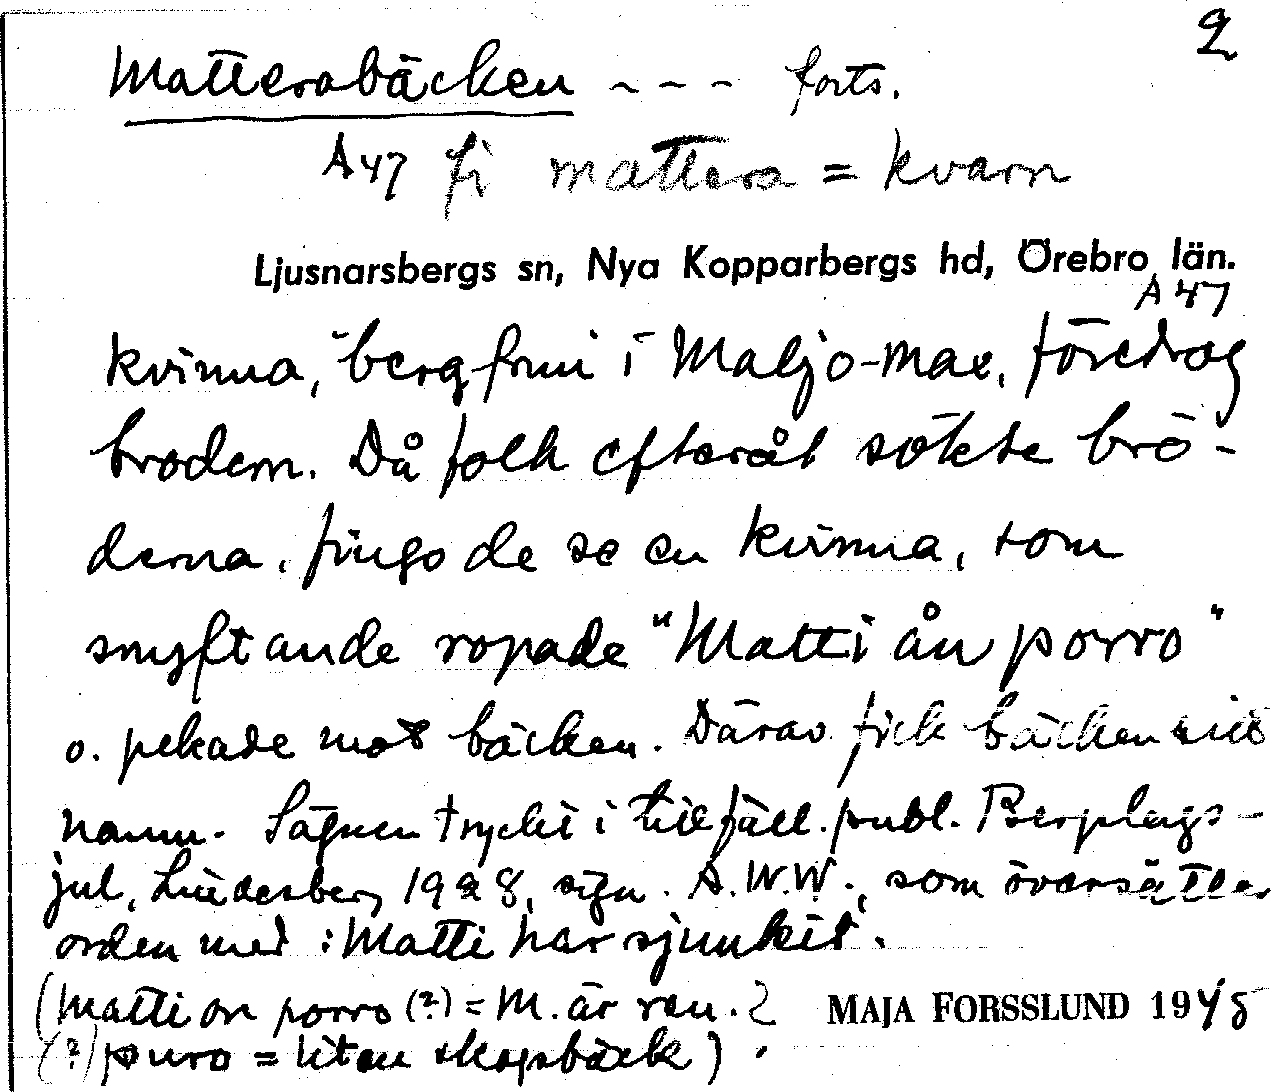 2
Matterobäcken - - - forts.
A47 fi mattera = kvarn
Ljusnarsbergs sn, Nya Kopparbergs hd, Örebro län.
A 47
kvinna, bergfrun i Maljo-max, föredrog
brodern. Då folk efteråt sökte brö-
derna, fingo de se en kvinna, som
snyftande ropade "Matti ån porro"
o. pekade mot bäcken. Därav fick bäcken sitt
namn. Sägnen tryckt i tillfäll. publ. Bergslags-
jul, Lindesberg 1928, sign. A.W.W., som översätter
orden med: Matti har sjunkit.
(Matti on porro (?) = M. är ren. ? MAJA FORSSLUND 1948
(?) puro = liten skogsbäck).